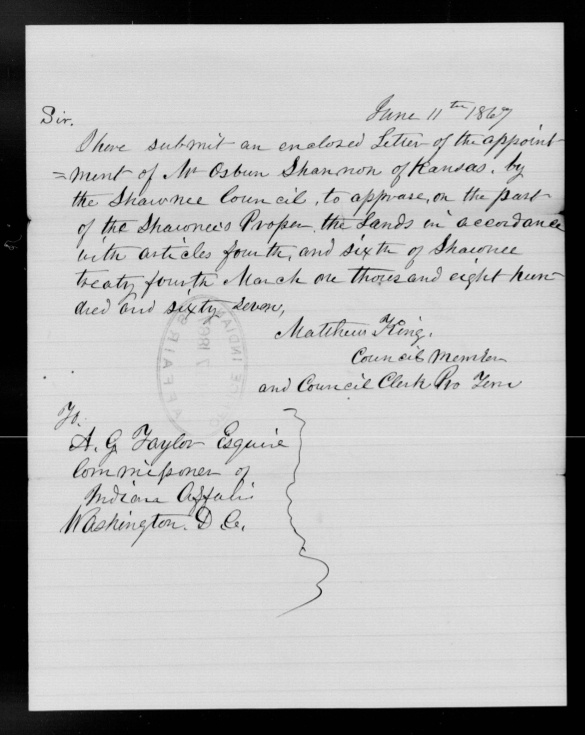 June 11th 1867
Sir.
I here submit an enclosed Letter of the appoint
=ment of Mr Osbun Shannon of Kansas, by
the Shawnee Council, to apprase, on the part
of the Shawnee's Proper, the Lands in accordance
with articles fourth, and sixth of Shawnee
treaty fourth March one thousand eight hun-
dred and sixty seven,
Matthew King,
Council Member
and Council Clerk Pro Tem
To.
A. G. Taylor Esquire
Commissioner of
Indian Affairs
Washington. D C.
INDIAN OFFICE
1867
AFFAIRS